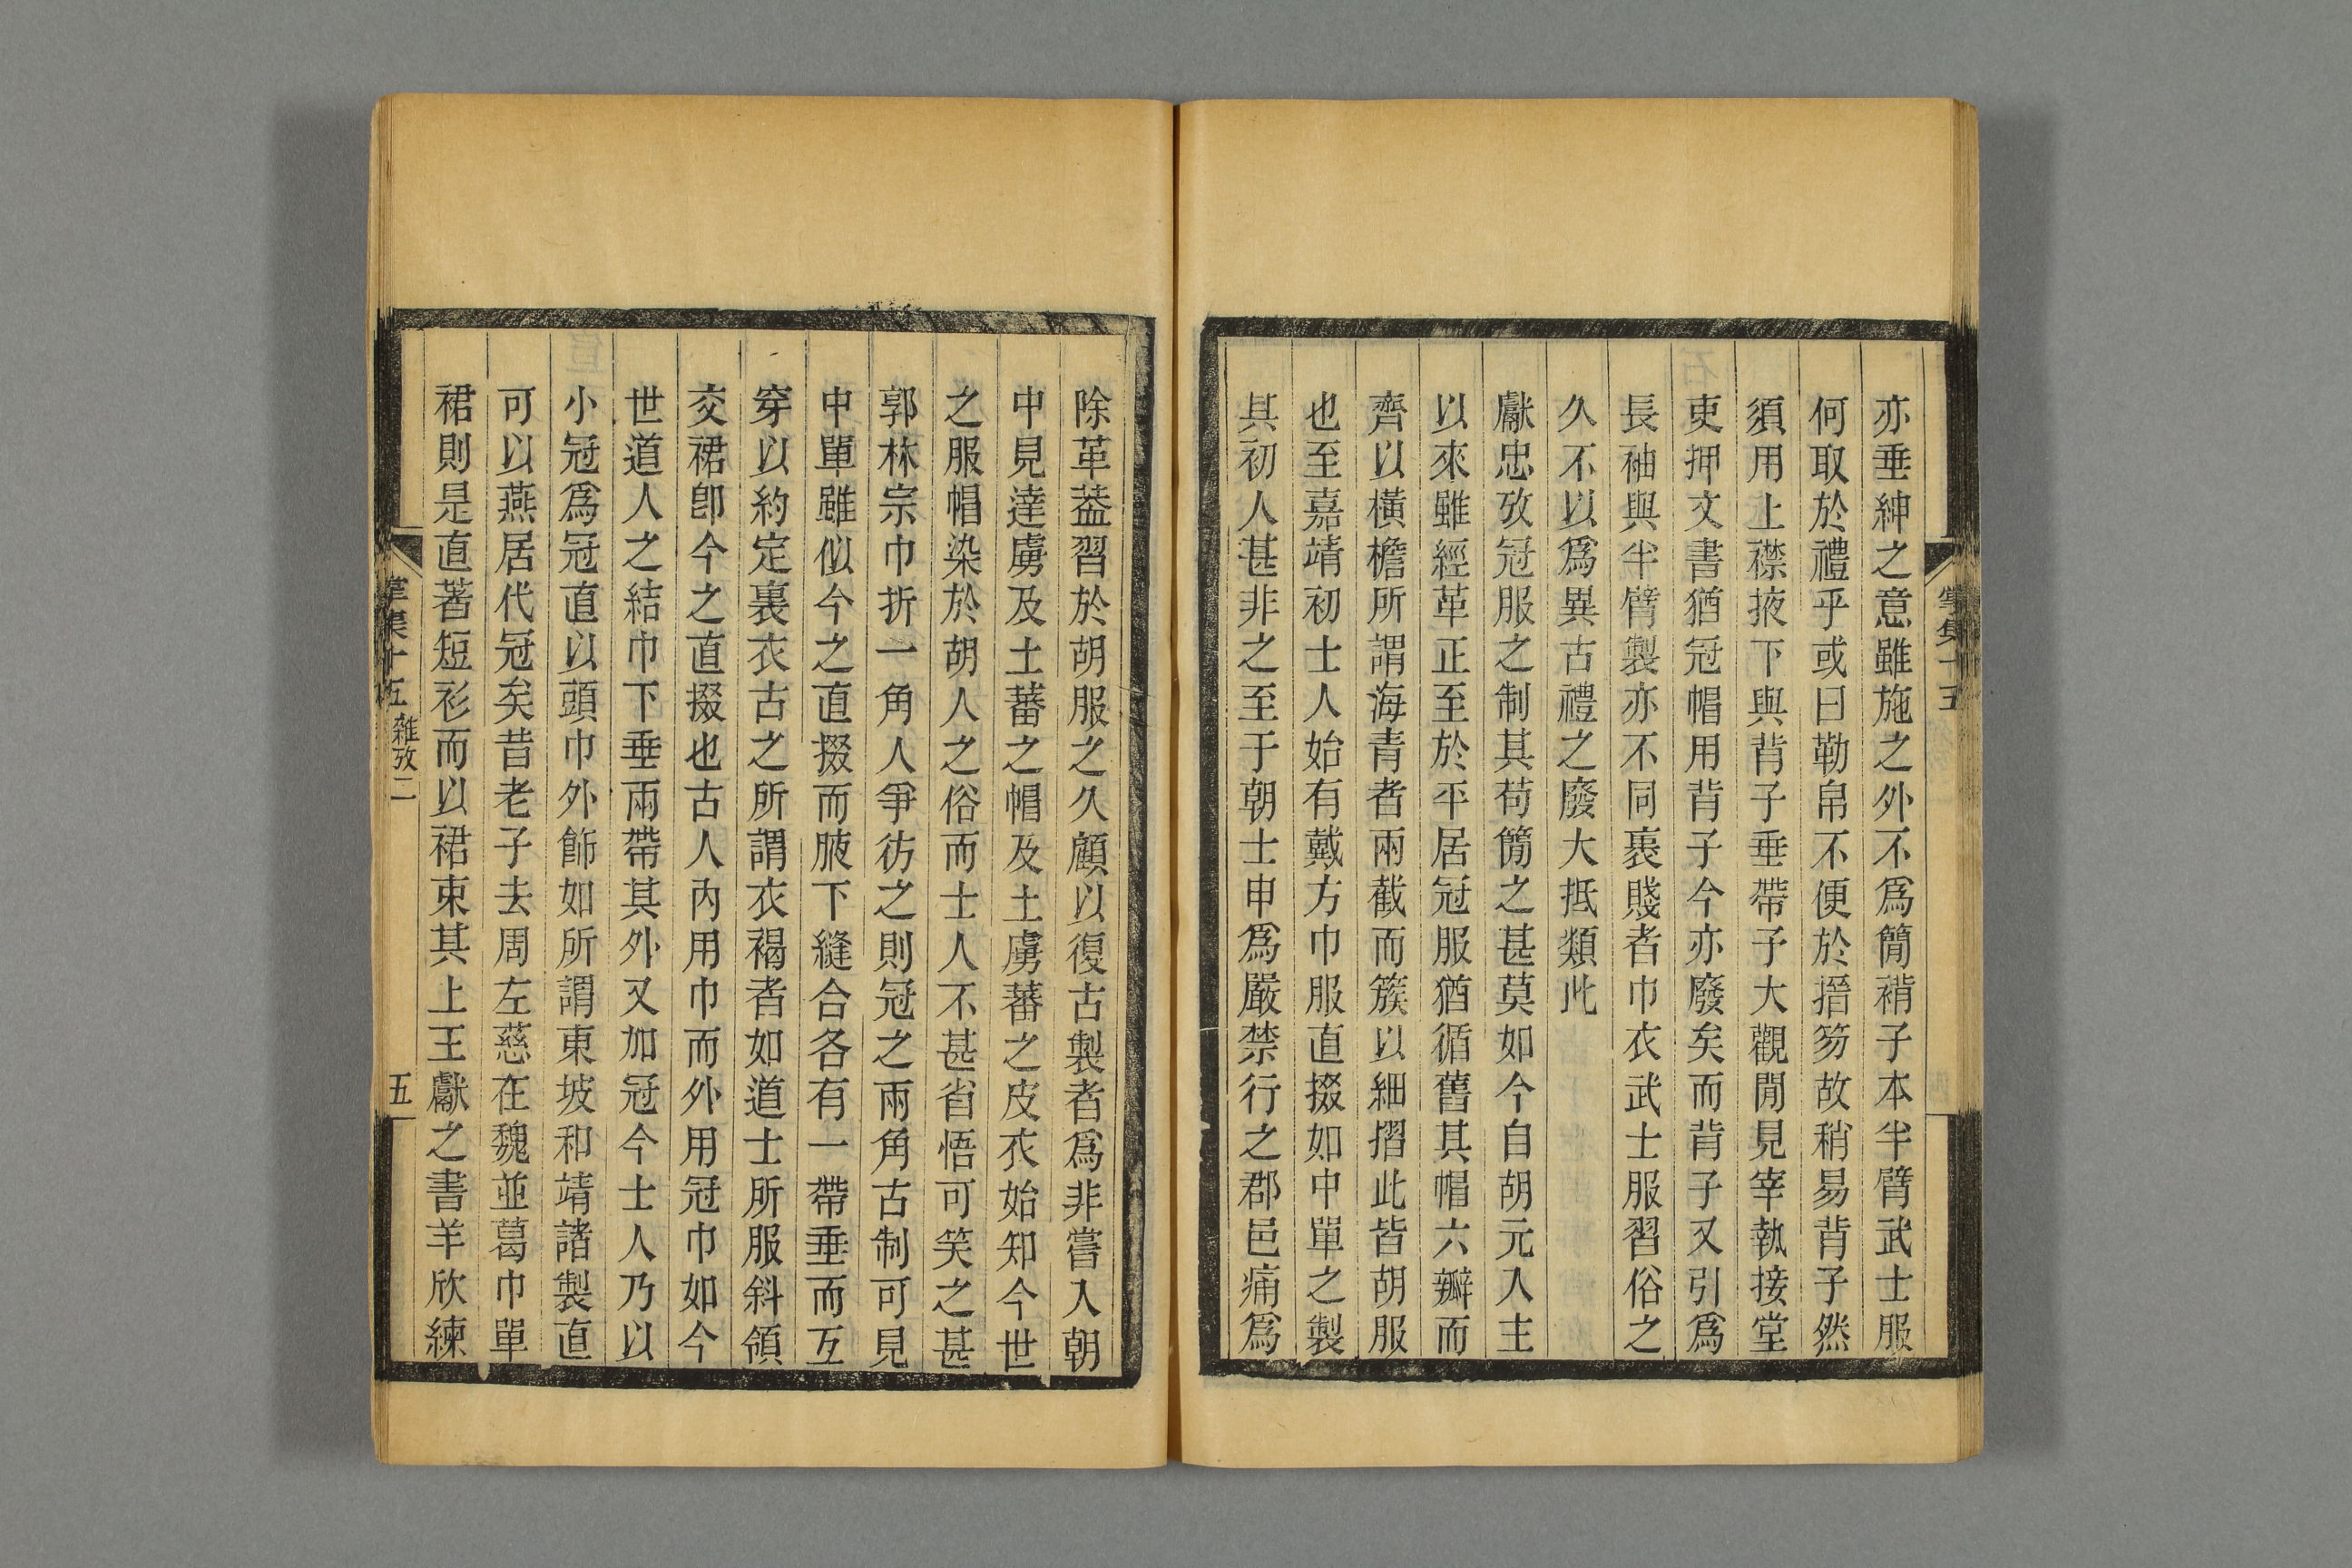 亦垂紳之意雖施之外不爲簡褙子本半臂武士服
何取於禮乎或曰勒帛不便於搢笏故稍易背子然
須用上襟掖下與背子垂帶子大觀閒見宰執接堂
吏押文書猶冠帽用背子今亦廢矣而背子又引爲
長袖與半臂製亦不同裹賤者巾衣武士服習俗之
久不以爲異古禮之廢大抵類此
獻忠攷冠服之制其苟簡之甚莫如今自胡元入主
以來雖經革正至於平居冠服猶循舊其帽六瓣而
齊以橫檐所謂海青者兩截而簇以細摺此皆胡服
也至嘉靖初士人始有戴方巾服直掇如中單之製
其初人甚非之至于朝士申爲嚴禁行之郡邑痛爲
除革葢習於胡服之久顧以復古製者爲非嘗入朝
中見達虜及土蕃之帽及土虜蕃之皮衣始知今世
之服帽染於胡人之俗而士人不甚省悟可笑之甚
郭林宗巾折一角人爭彷之則冠之兩角古制可見
中單雖似今之直掇而腋下縫合各有一帶垂而互
穿以約定裏衣古之所謂衣褐者如道士所服斜領
交裙卽今之直掇也古人內用巾而外用冠巾如今
世道人之結巾下垂兩帶其外又加冠今士人乃以
小冠爲冠直以頭巾外飾如所謂東坡和靖諸製直
可以燕居代冠矣昔老子去周左慈在魏並葛巾單
裙則是直著短衫而以裙束其上王獻之書羊欣練
掌集十五 雜攷二 五